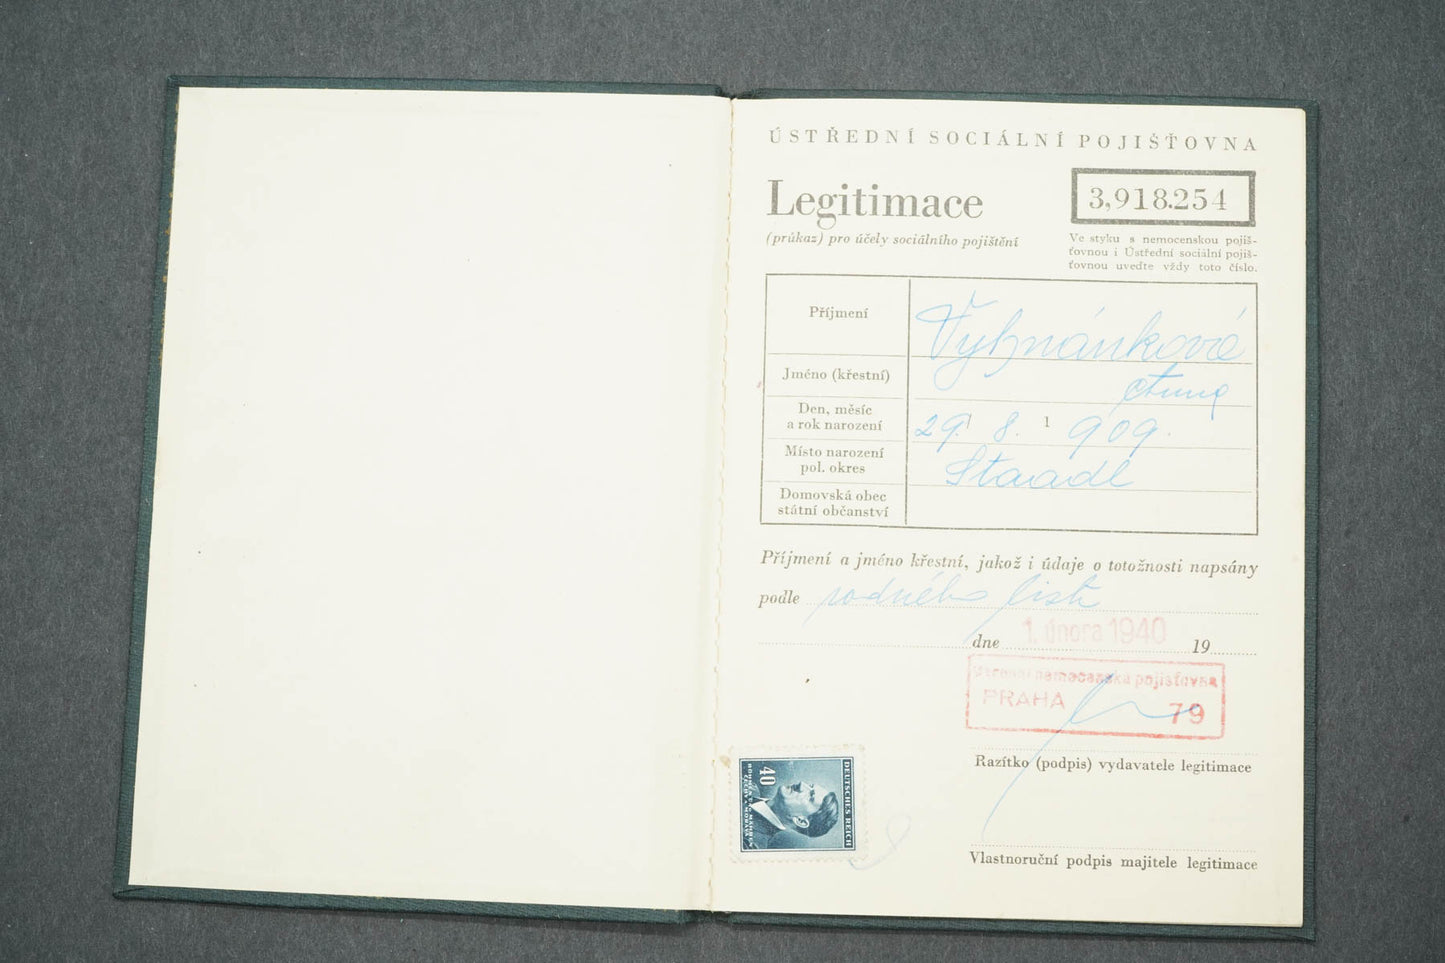 ÚSTŘEDNÍ SOCIÁLNÍ POJIŠŤOVNA
Legitimace
(průkaz) pro účely sociálního pojištění
3,918.254
Ve styku s nemocenskou pojiš-
ťovnou i Ústřední sociální pojiš-
ťovnou uveďte vždy toto číslo.
Příjmení
Vyhnánková
Jméno (křestní)
Anna
Den, měsíc
a rok narození
29. 8. 1 909.
Místo narození
pol. okres
Domovská obec
státní občanství
Příjmení a jméno křestní, jakož i údaje o totožnosti napsány
podle rodného listu
dne 1. února 1940 19
nemocenská pojišťovna
PRAHA 79
Razítko (podpis) vydavatele legitimace
Vlastnoruční podpis majitele legitimace
DEUTSCHES REICH
40
BÖHMEN U. MÄHREN
ČECHY A MORAVA